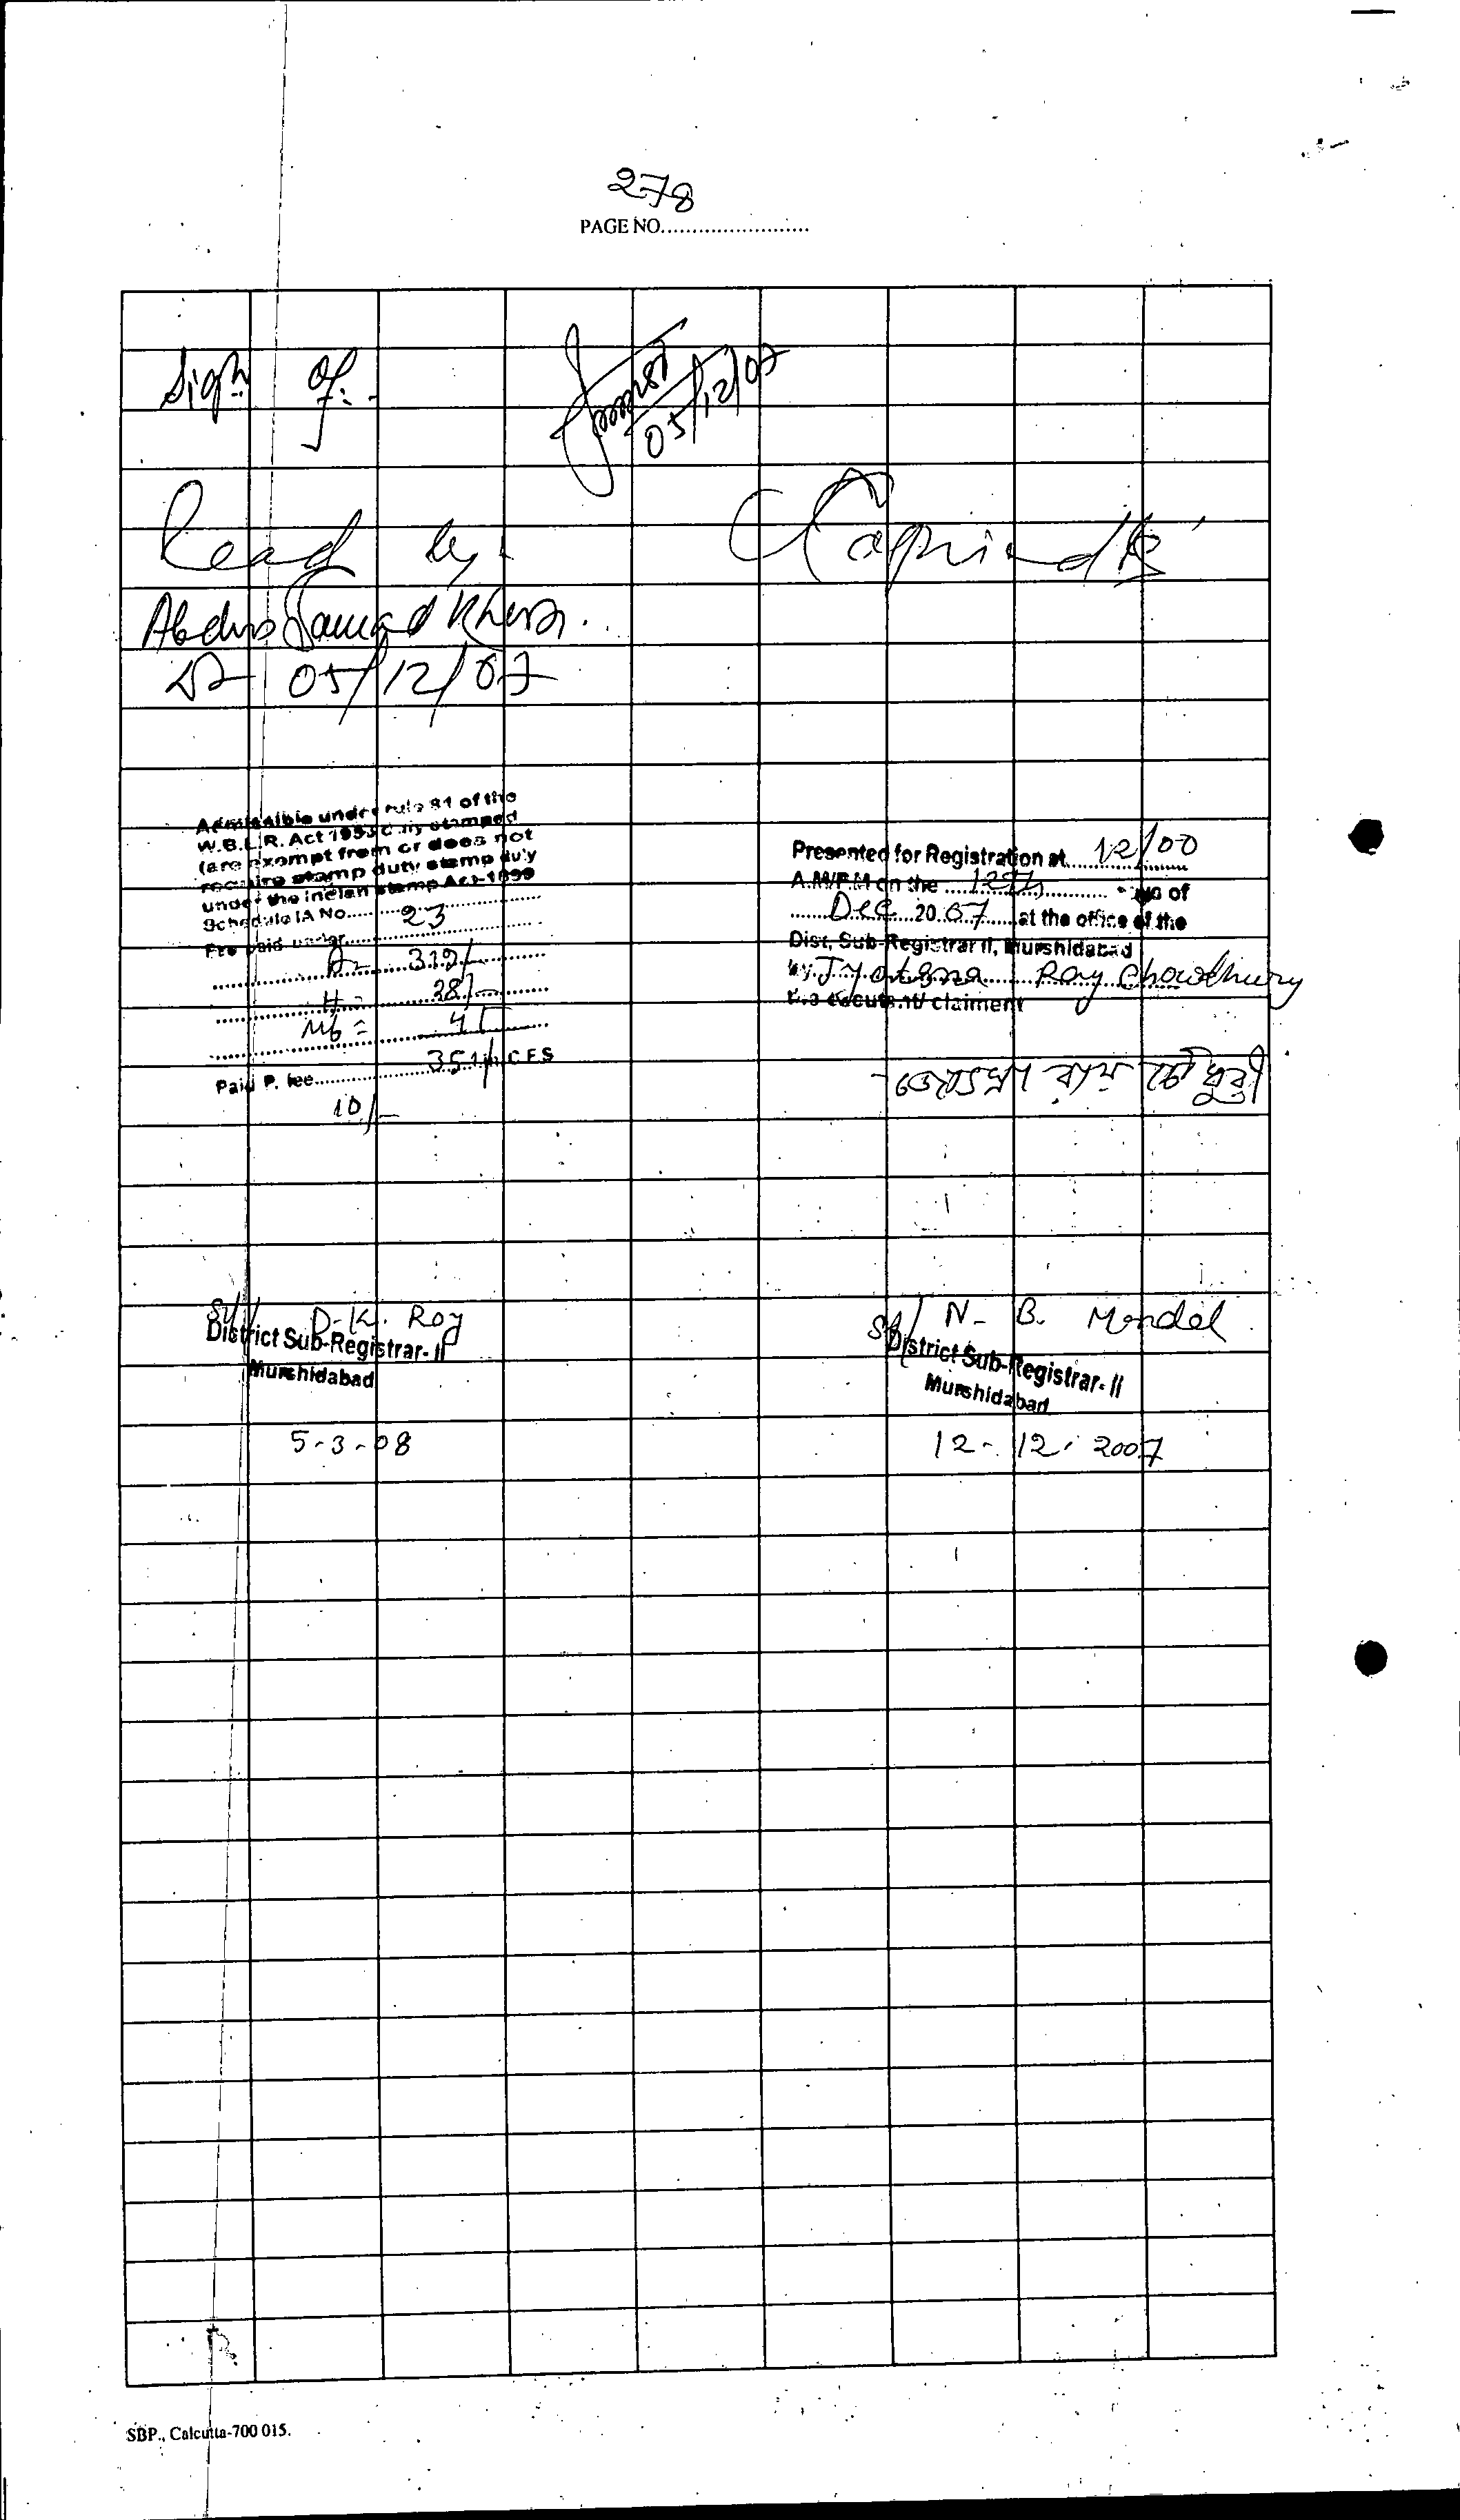 278
PAGE NO........................
Sign of:-
05/12/07
Read by
Abdus Samad Khan.
05/12/07
Admissible under rule 81 of the
W.B.L.R. Act 1955 duly stamped
(are exempt from or does not
require stamp duty stamp duty
under the indian stamp Act-1899
Schedule IA No. 23
Fee paid under
A- 319/-
H= 28/-
Mb= 4/-
351/- C.F.S
Paid P. fee
10/-
Presented for Registration at 12/00
A.M/P.M on the 12th of
Dec 2007 at the office of the
Dist, Sub-Registrar II, Murshidabad
by Jyotsna Ray Chowdhury
the executent/ claiment
Sd/ D.K. Roy
District Sub-Registrar- II
Murshidabad
5-3-08
Sd/ N. B. Mondal
District Sub-Registrar- II
Murshidabad
12-12-2007
SBP., Calcutta-700 015.